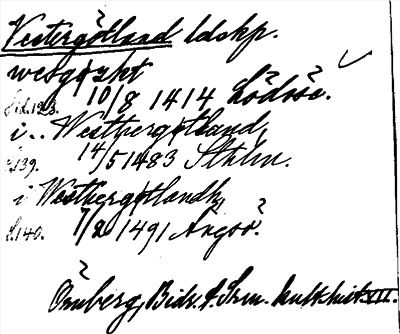 Vestergötland ldskp.
wesgøzht
Sid.123. 10/8 1414 Lödöse.
i .. Westhergøtland,
S.139. 14/5 1483 Sthlm.
i Westhergøtlandh,
S.140. 7/2 1491 Ängsö.
Örnberg, Bidr. t. Srm. kult.hist. VII.